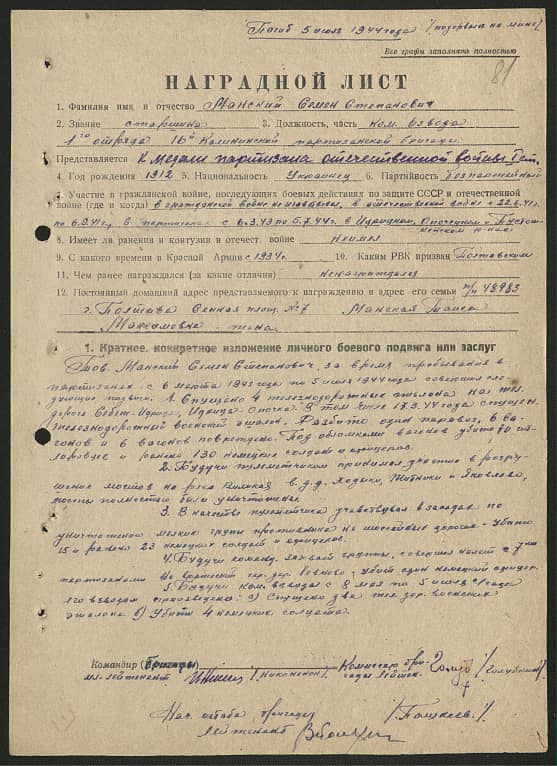 Погиб 5 июля 1944 года /подорвался на мине/
Все графы заполнять полностью
81
НАГРАДНОЙ ЛИСТ
1. Фамилия имя и отчество Манский Семен Степанович
2. Звание старшина 3. Должность, часть ком. взвода
1го отряда 16й Калининской партизанской бригады.
Представляется к медали партизана отечественной войны I ст.
4. Год рождения 1912 5. Национальность Украинец 6. Партийность беспартийный
7. Участие в гражданской войне, последующих боевых действиях по защите СССР и отечественной
войне (где и когда) в гражданской войне не участвовал, в отечественной войне с 22.6.41г
по 6.9.41г, в партизанах с 6.3.43 по 5.7.44г. в Идрицком, Опочецком и
8. Имеет ли ранения и контузии в отечест. войне не имел
9. С какого времени в Красной Армии с 1934г. 10. Каким РВК призван Полтавским
11. Чем ранее награждался (за какие отличия) не награждался
12. Постоянный домашний адрес представляемого к награждению и адрес его семьи п/п 48983
г. Полтава Сенная площ. №7 Манская Таиса
Максимовна жена.
1. Краткое, конкретное изложение личного боевого подвига или заслуг
Тов. Манский Семен Степанович, за время пребывания в
партизанах с 6 марта 1943 года по 5 июля 1944 года совершил сле-
дующие подвиги. 1. Спущено 4 железнодорожных эшелона на жел.
дороге Себеж-Идрица, Идрица-Опочка. В том числе 17.3.44 года спущен
железнодорожный воинский эшелон. Разбито один паровоз, 8 ва-
гонов и 6 вагонов повреждено. Под обломками вагонов убито 70
и ранено 130 немецких солдат и офицеров.
2. Будучи пулеметчиком принимал участие в разру-
шение мостов на реке Великая в д.д. Ходыки, и Яковлево,
мосты полностью были уничтожены.
3. В качестве пулеметчика участвовал в засадах по
уничтожению мелких групп противника на шоссейных дорогах - убито
15 и ранено 23 немецких солдат и офицеров.
4. Будучи команд. группы, совершил налет с 7 мя
партизанами на вражеский гар. дер. Ровново - убит один немецкий офицер.
5. Будучи ком. взвода с 8 мая по 5 июля с/года
его взводом произведено: а) Спущено два жел. дор. воинских
эшелона б) Убиты 4 немецких солдата.
Командир бригады Комиссар бри-
мл. лейтенант /Никоненок/ гады /Голубинин/
Нач. штаба бригады
лейтенант